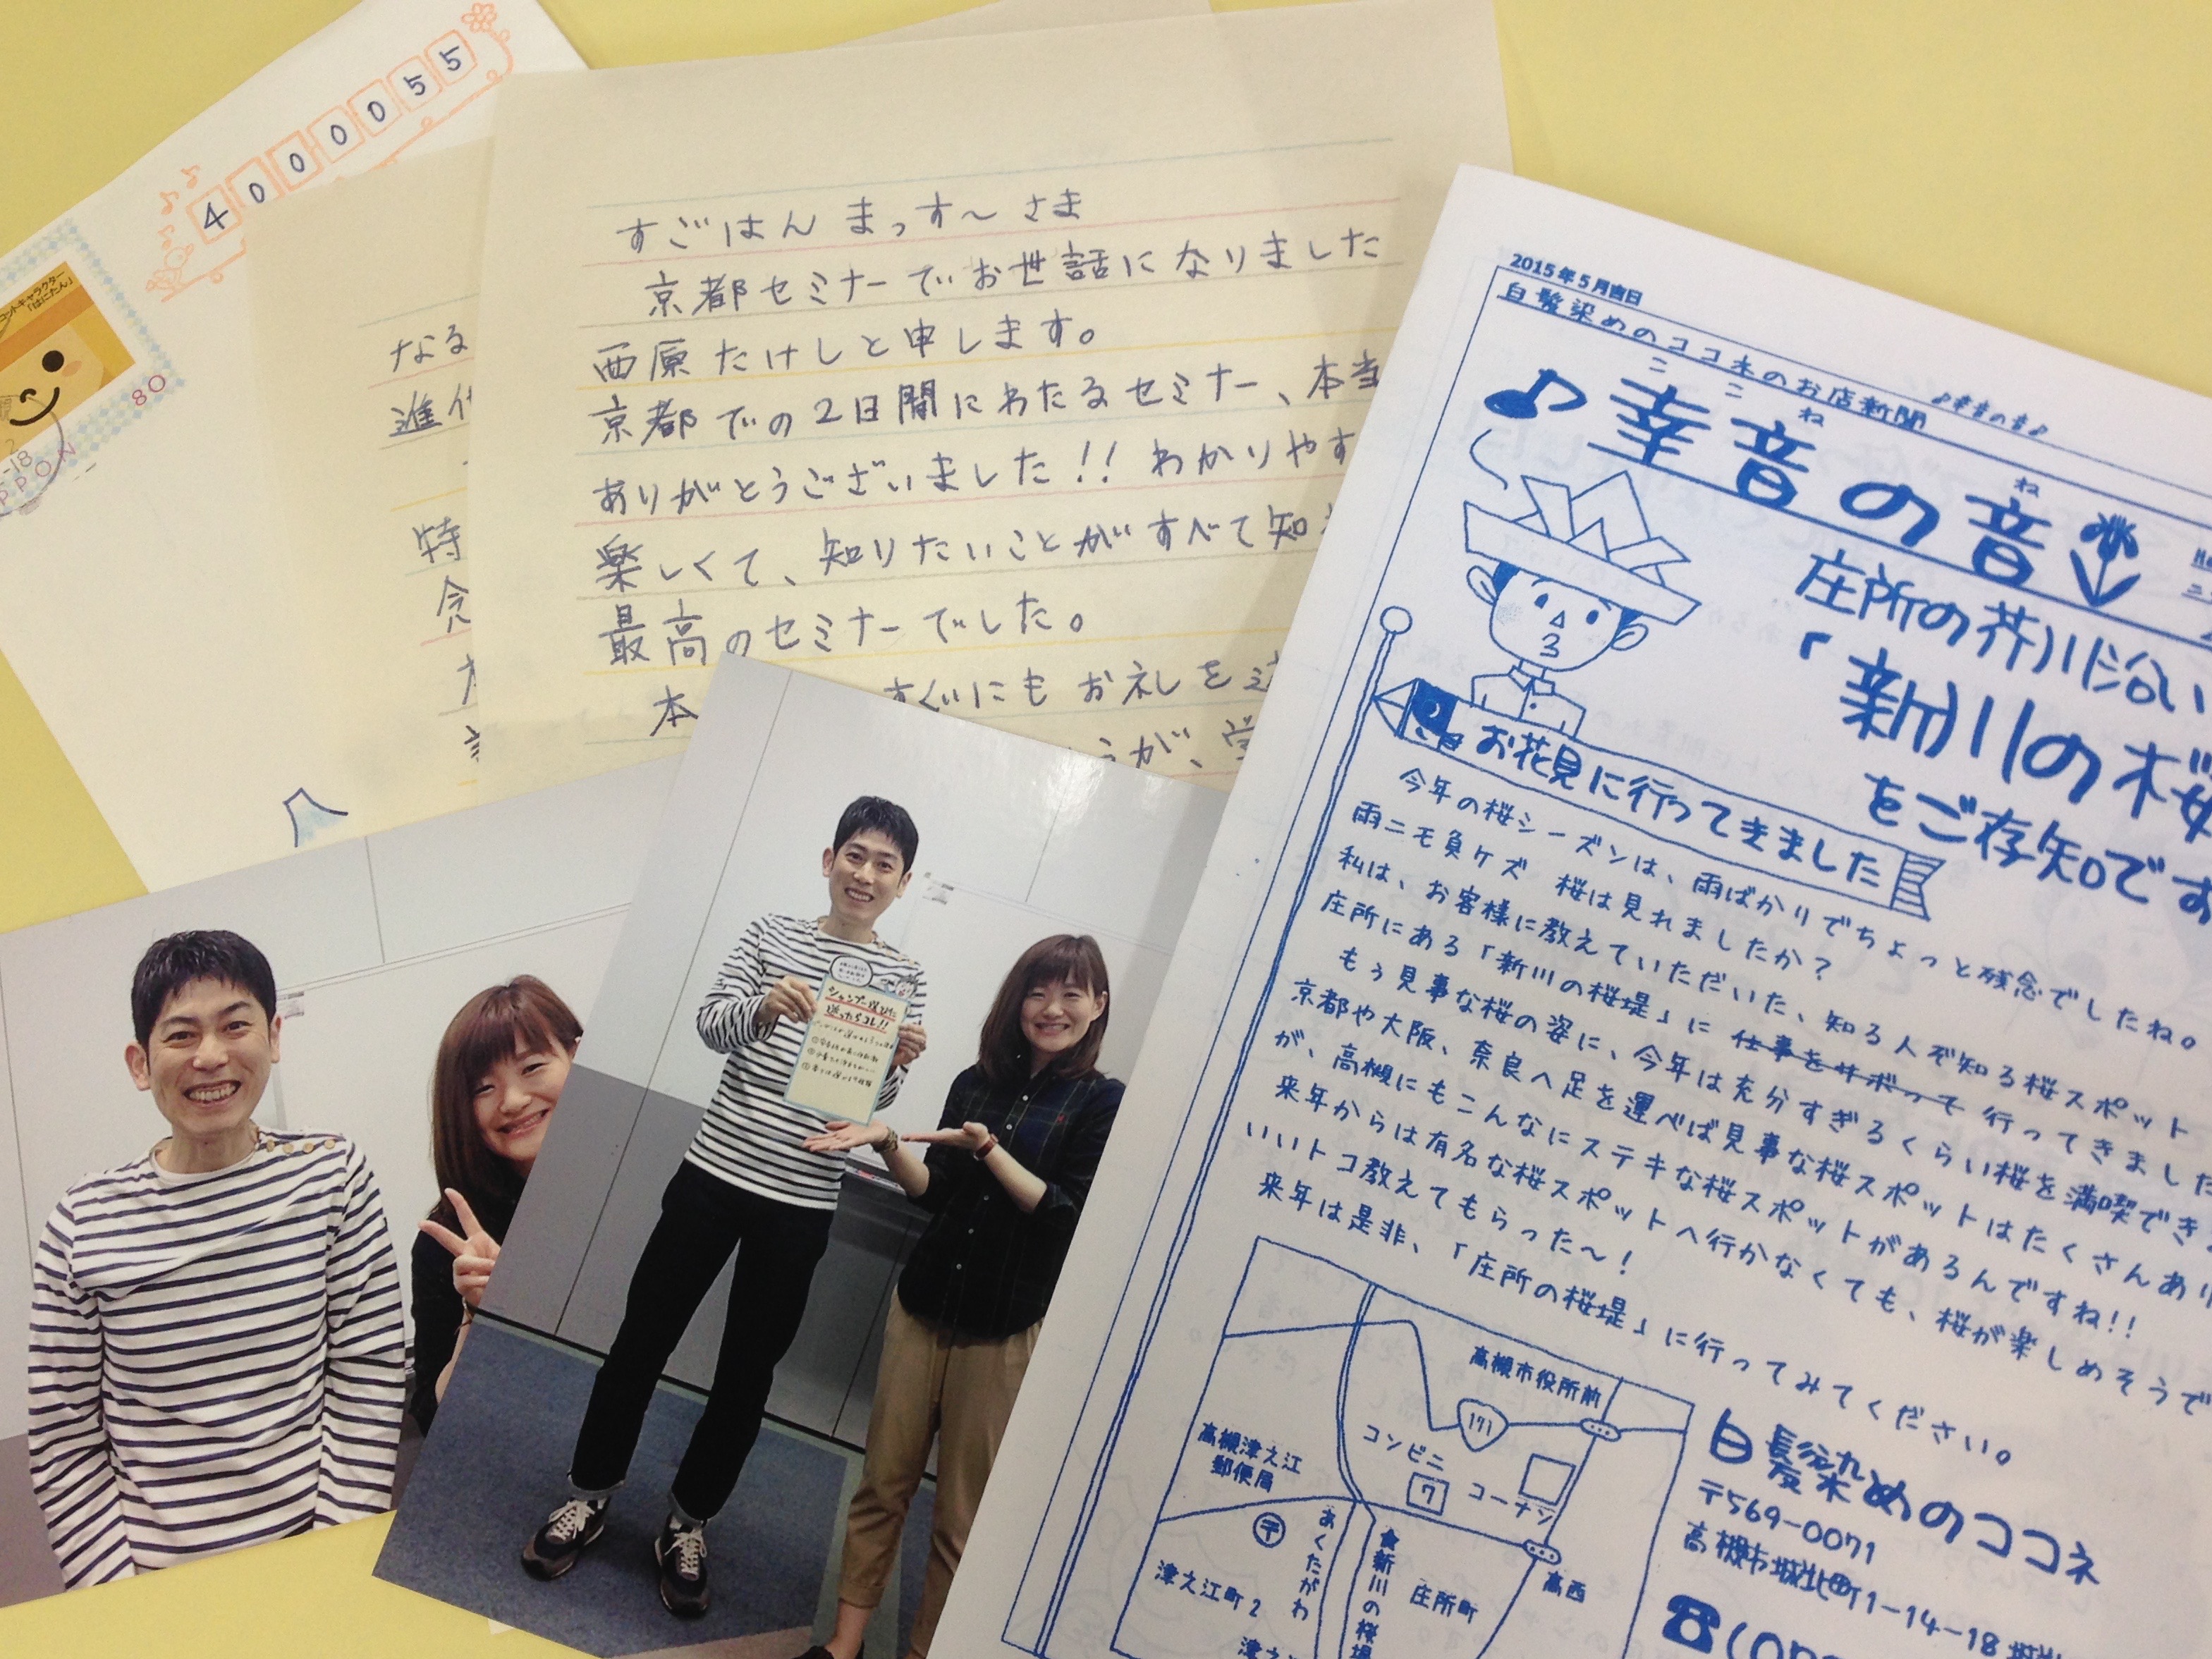 4000055
「はにたん」
80
すごはん まっす〜さま
京都セミナーでお世話になりました
西原たけしと申します。
京都での2日間にわたるセミナー、本当
ありがとうございました!! わかりやす
楽しくて、知りたいことがすべて知
最高のセミナーでした。
本
すぐにもお礼を
が、
なる
進
特
念
シャンプー選びに
迷ったらコレ!!
2015年5月吉日
白髪染めのココネのお店新聞
♪幸音の音♪
ココね ね
♪幸音の音
庄所の芥川沿い
「新川の桜
をご存知です
お花見に行ってきました
今年の桜シーズンは、雨ばかりでちょっと残念でしたね。
雨ニモ負ケズ 桜は見れましたか?
私は、お客様に教えていただいた、知る人ぞ知る桜スポット
庄所にある「新川の桜堤」に仕事をサボって行ってきました
もう見事な桜の姿に、今年は充分すぎるくらい桜を満喫でき
京都や大阪、奈良へ足を運べば見事な桜スポットはたくさんあり
が、高槻にもこんなにステキな桜スポットがあるんですね!!
来年からは有名な桜スポットへ行かなくても、桜が楽しめそうで
いいトコ教えてもらった〜!
来年は是非、「庄所の桜堤」に行ってみてください。
高槻市役所前
171
高槻津之江
郵便局
コンビニ
7
コーナン
〒
あくたがわ
★新川の桜堤
高西
津之江町2
庄所町
津之
白髪染めのココネ
〒569-0071
高槻市城北町1-14-18
☎(07